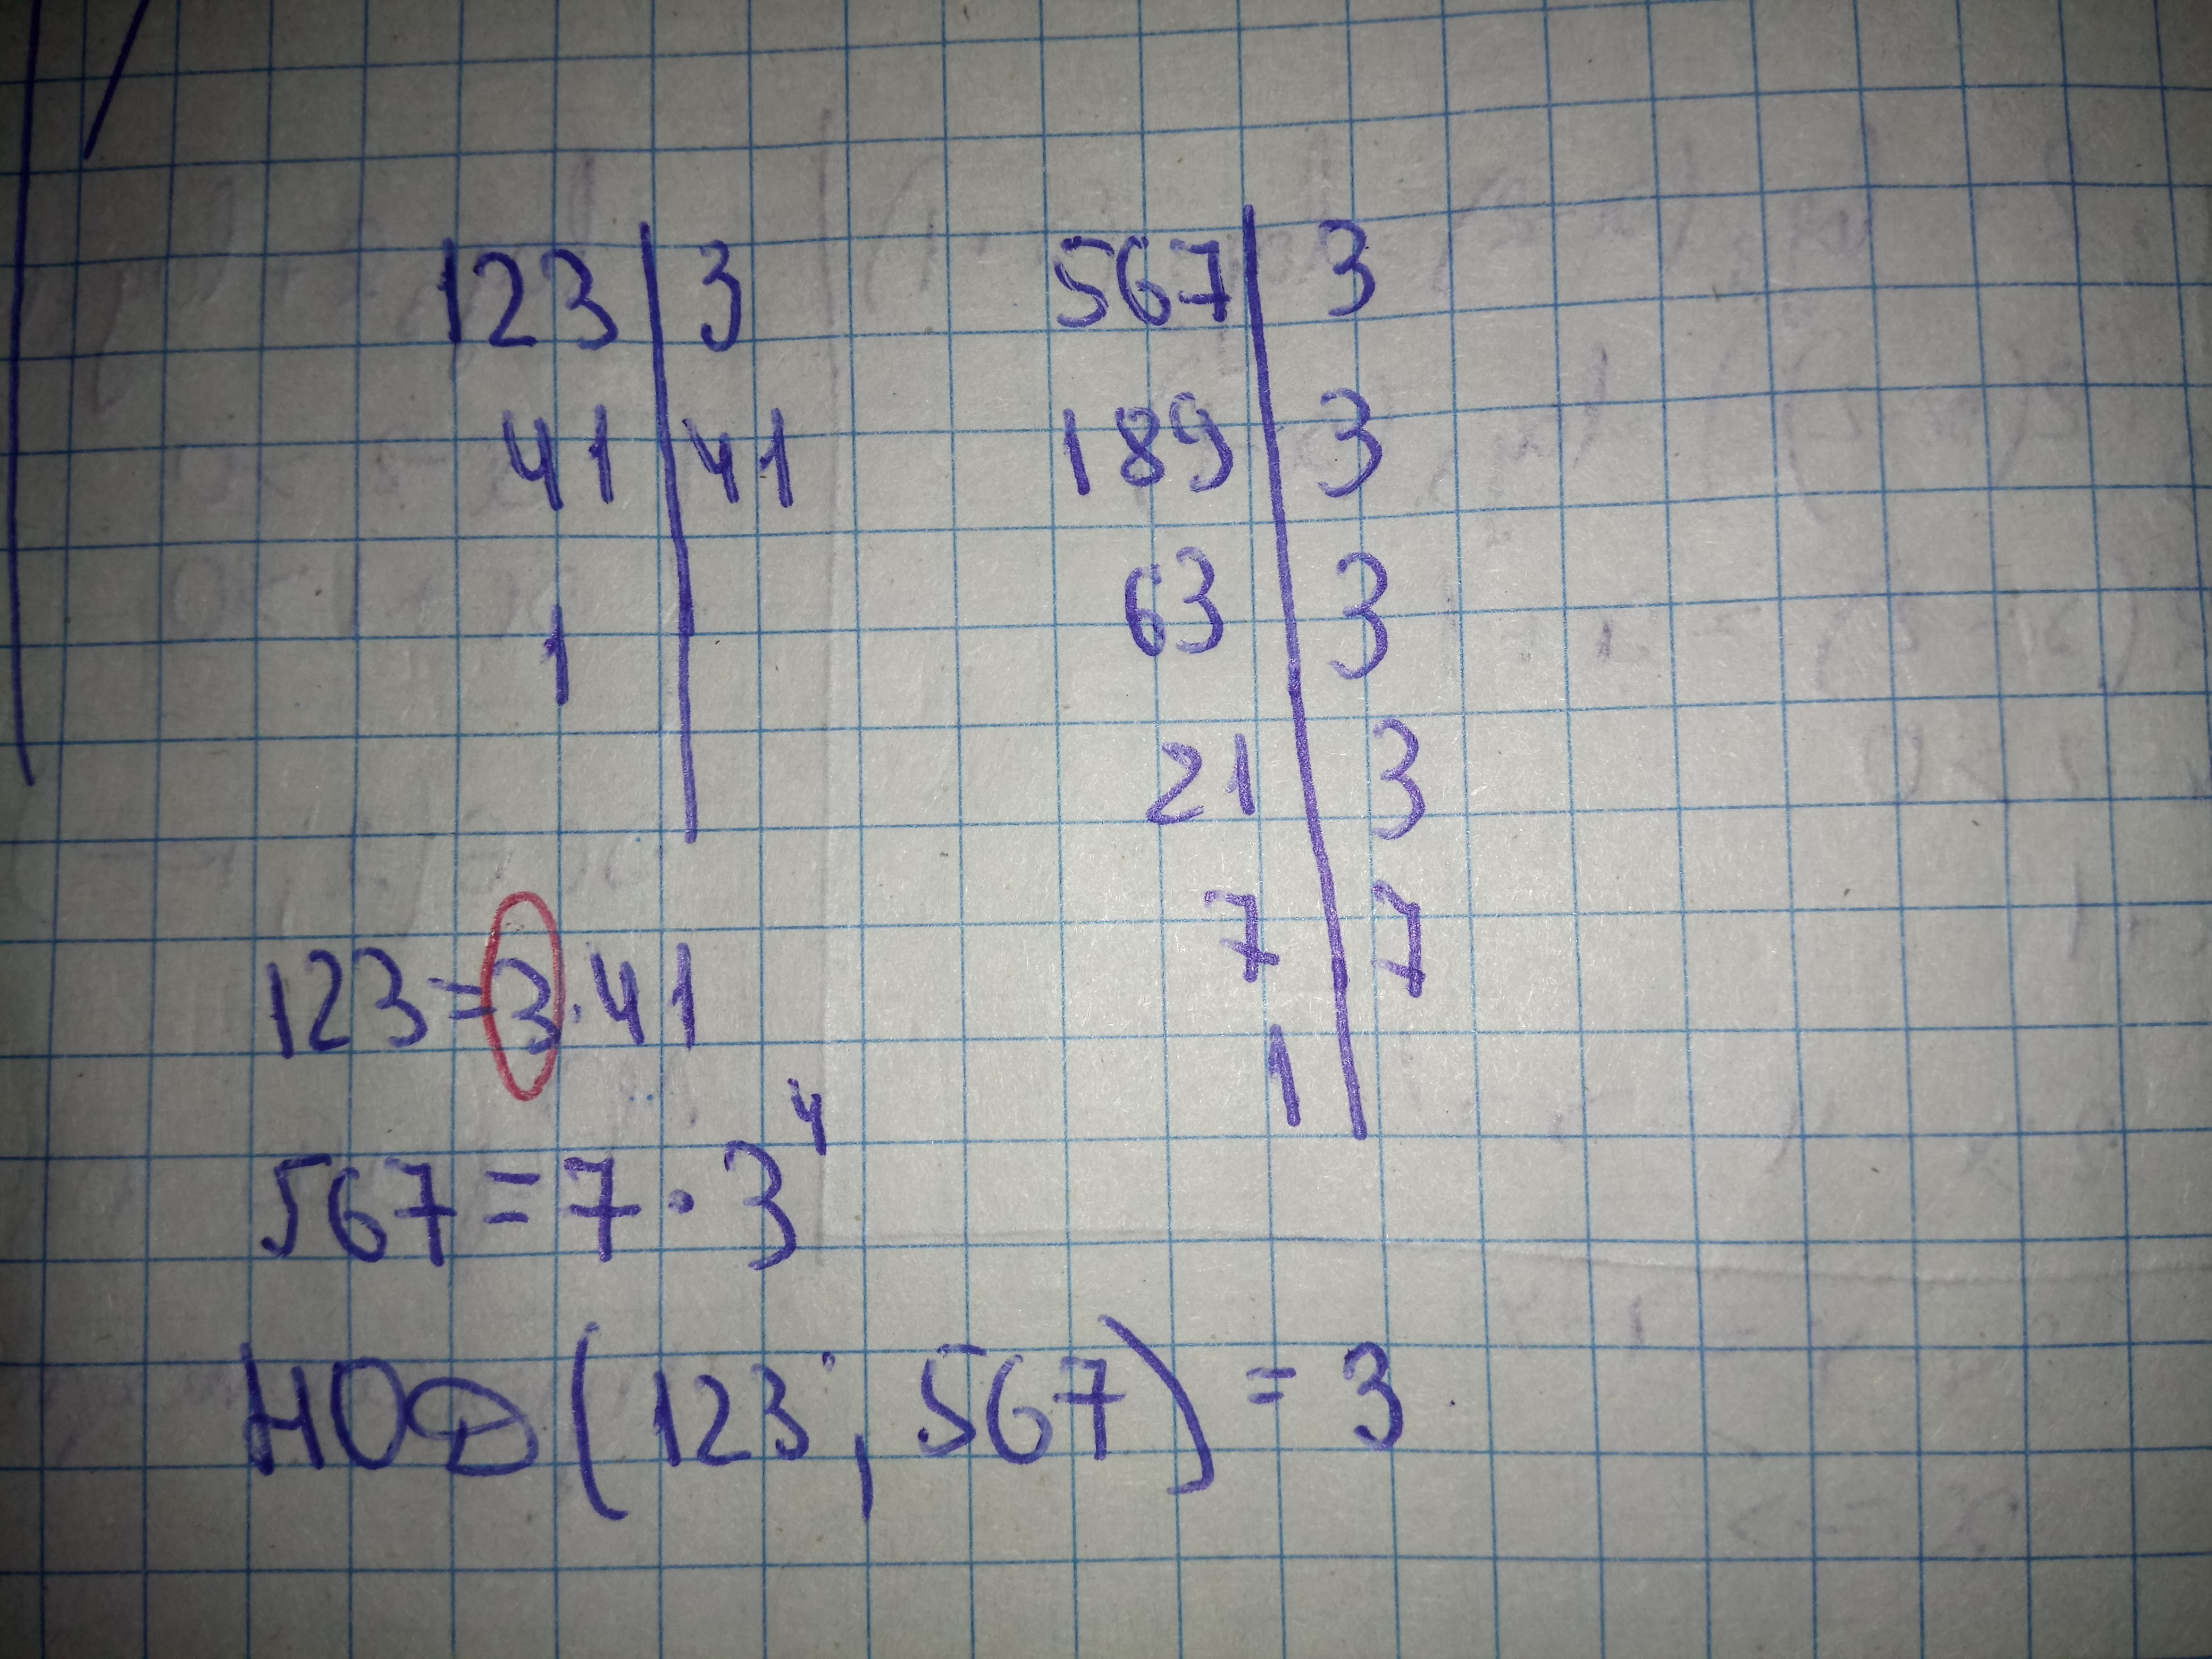 123 | 3
41 | 41
1 |
567 | 3
189 | 3
63 | 3
21 | 3
7 | 7
1 |
123=3·41
567=7·3⁴
НОД(123, 567)=3